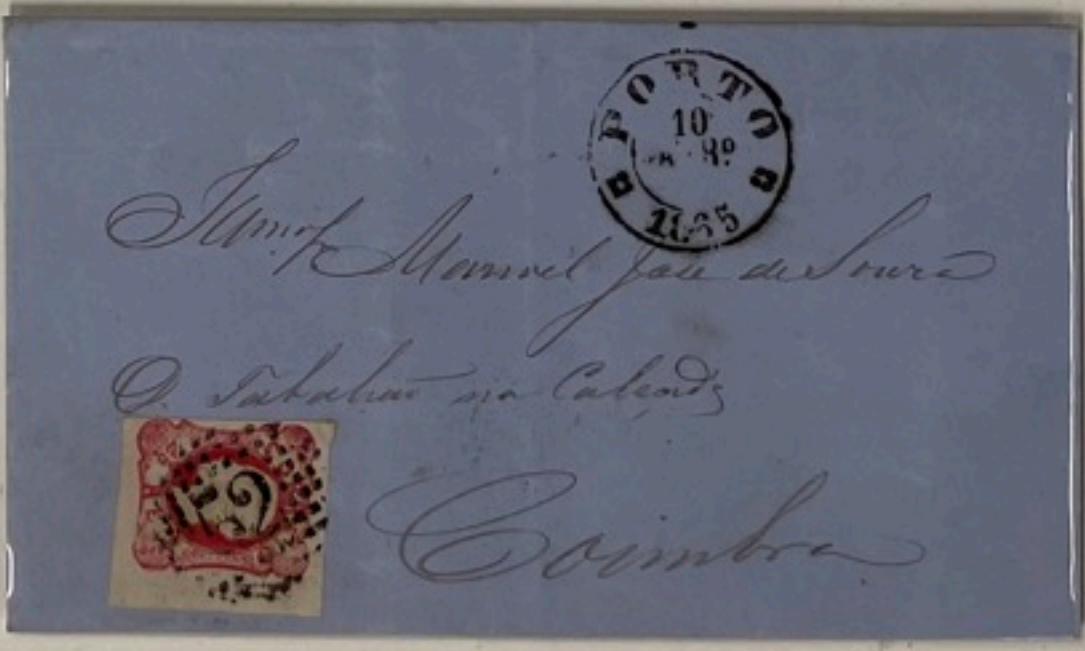 PORTO
10
1865
Manoel José de Souza
Tabalião na Calçada
Coimbra
52